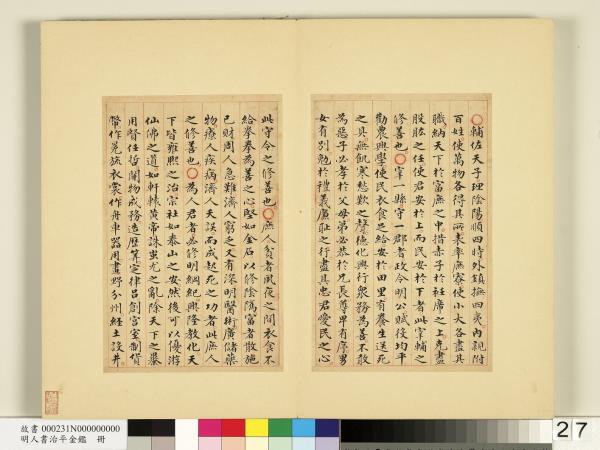 ○輔佐天子理陰陽順四時外鎮撫四夷內親附
百姓使萬物各得其所表率庶寮使小大各盡其
職納天下於富庶之中措赤子於袵席之上克盡
股肱之任使君安於上而民安於下者此宰輔之
修善也○宰一縣守一郡者政令明公賦役均平
勸農興學使民衣食足給安於田里有養生送死
之具無飢寒愁歎之聲德化興行衆務為善不敢
為惡子必孝於父母弟必恭於兄長尊卑有序男
女有別勉於禮義廉耻之行盡其忠君愛民之心
此守令之修善也○庶人貧者夙夜之間衣食不
給拳拳為善之心堅如金石以修陰隲富者散施
已財周人急難濟人窮乏又有深明醫術廣儲藥
物療人疾病濟人夭誤而成起死之功者此庶人
之修善也○為人君者必修明綱紀興隆教化天
下皆雍熙之治宗社如泰山之安然後可以優游
仙佛之道如軒轅黃帝誅蚩尤之亂除天下之暴
用賢任哲開物成務造曆算定律呂創宮室制貨
幣作冕旒衣裳作舟車器用畫野分州經土設井
故書 000231N000000000
明人書治平金鑑 冊
27